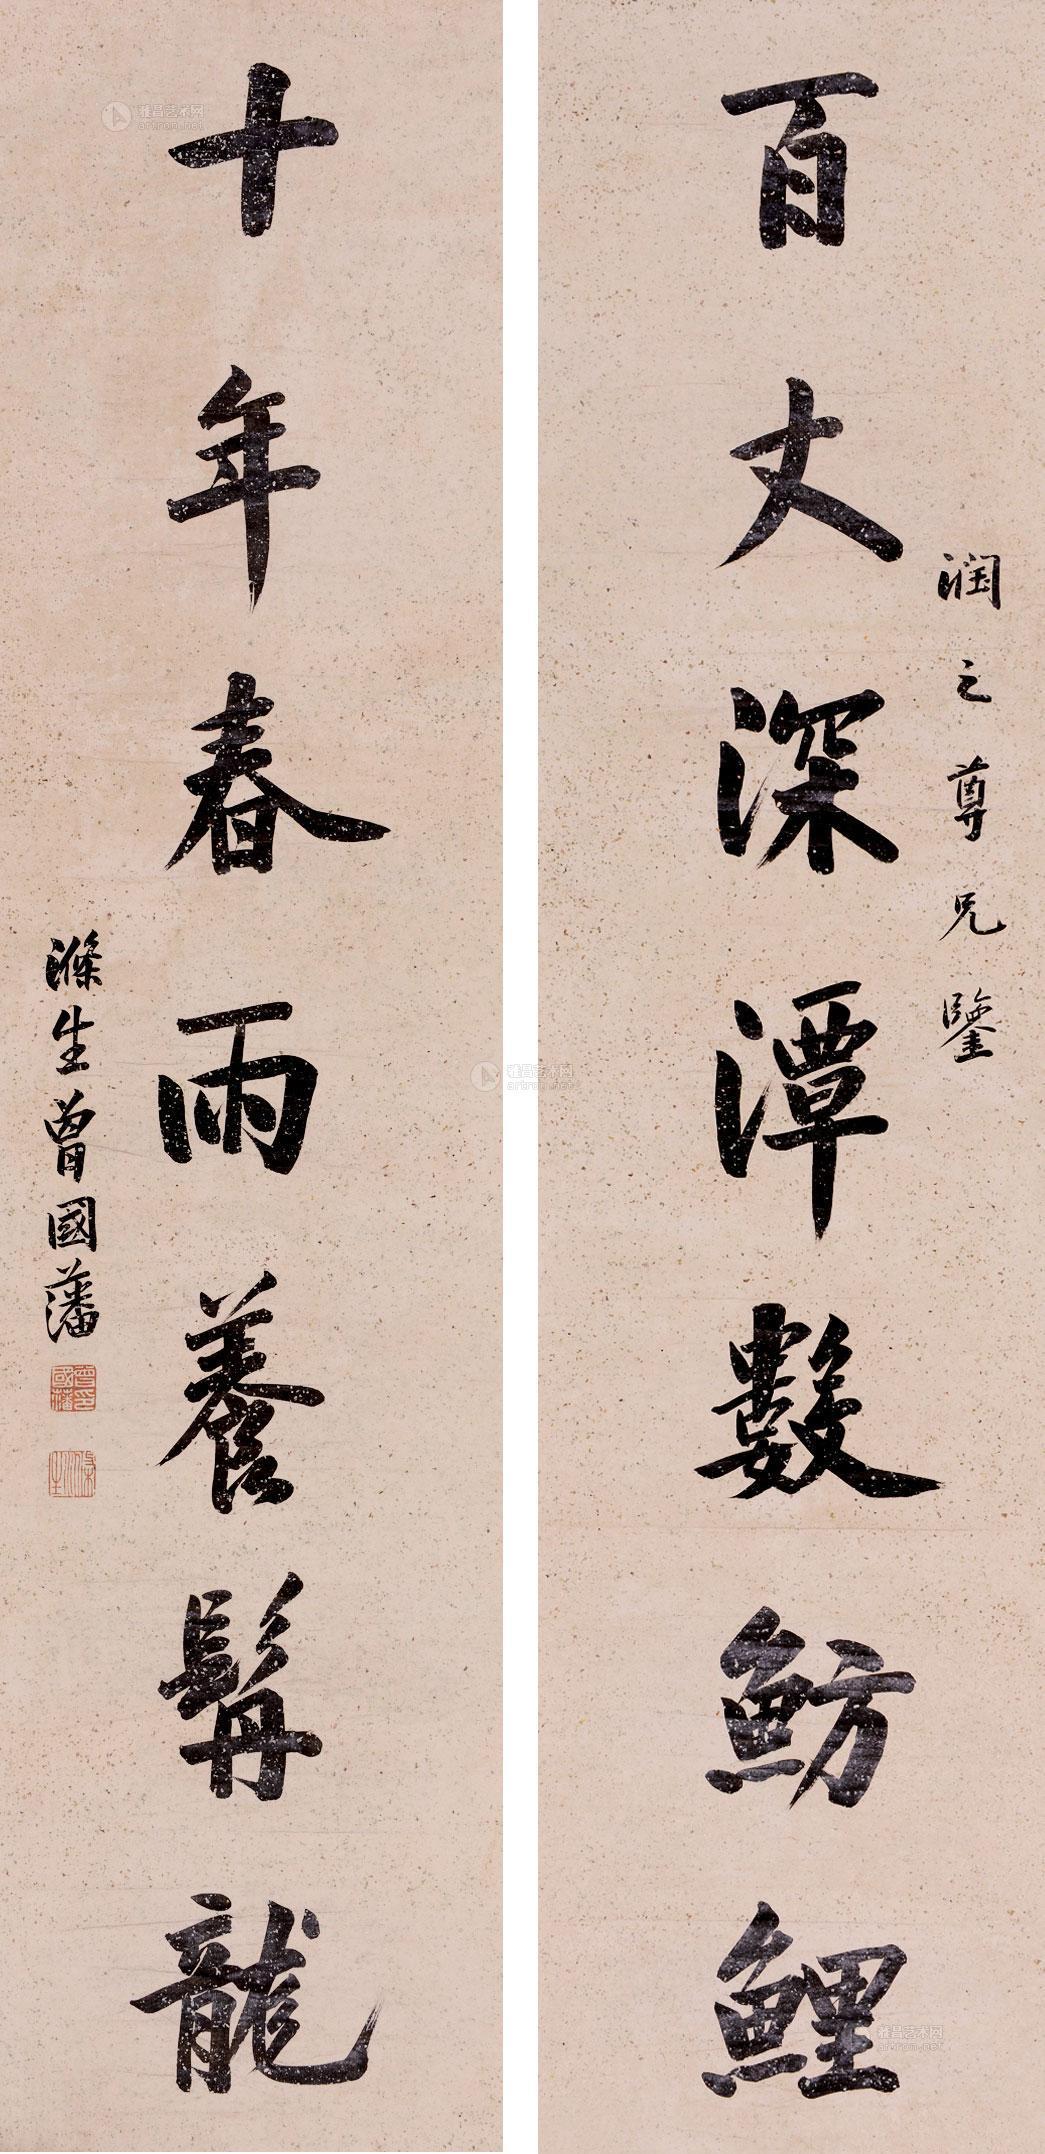 潤之尊兄鑒
百丈深潭數魴鯉
十年春雨養髯龍
滌生曾國藩
曾國藩印
滌生
雅昌艺术网
artron.net
雅昌艺术网
artron.net
雅昌艺术网
artron.net